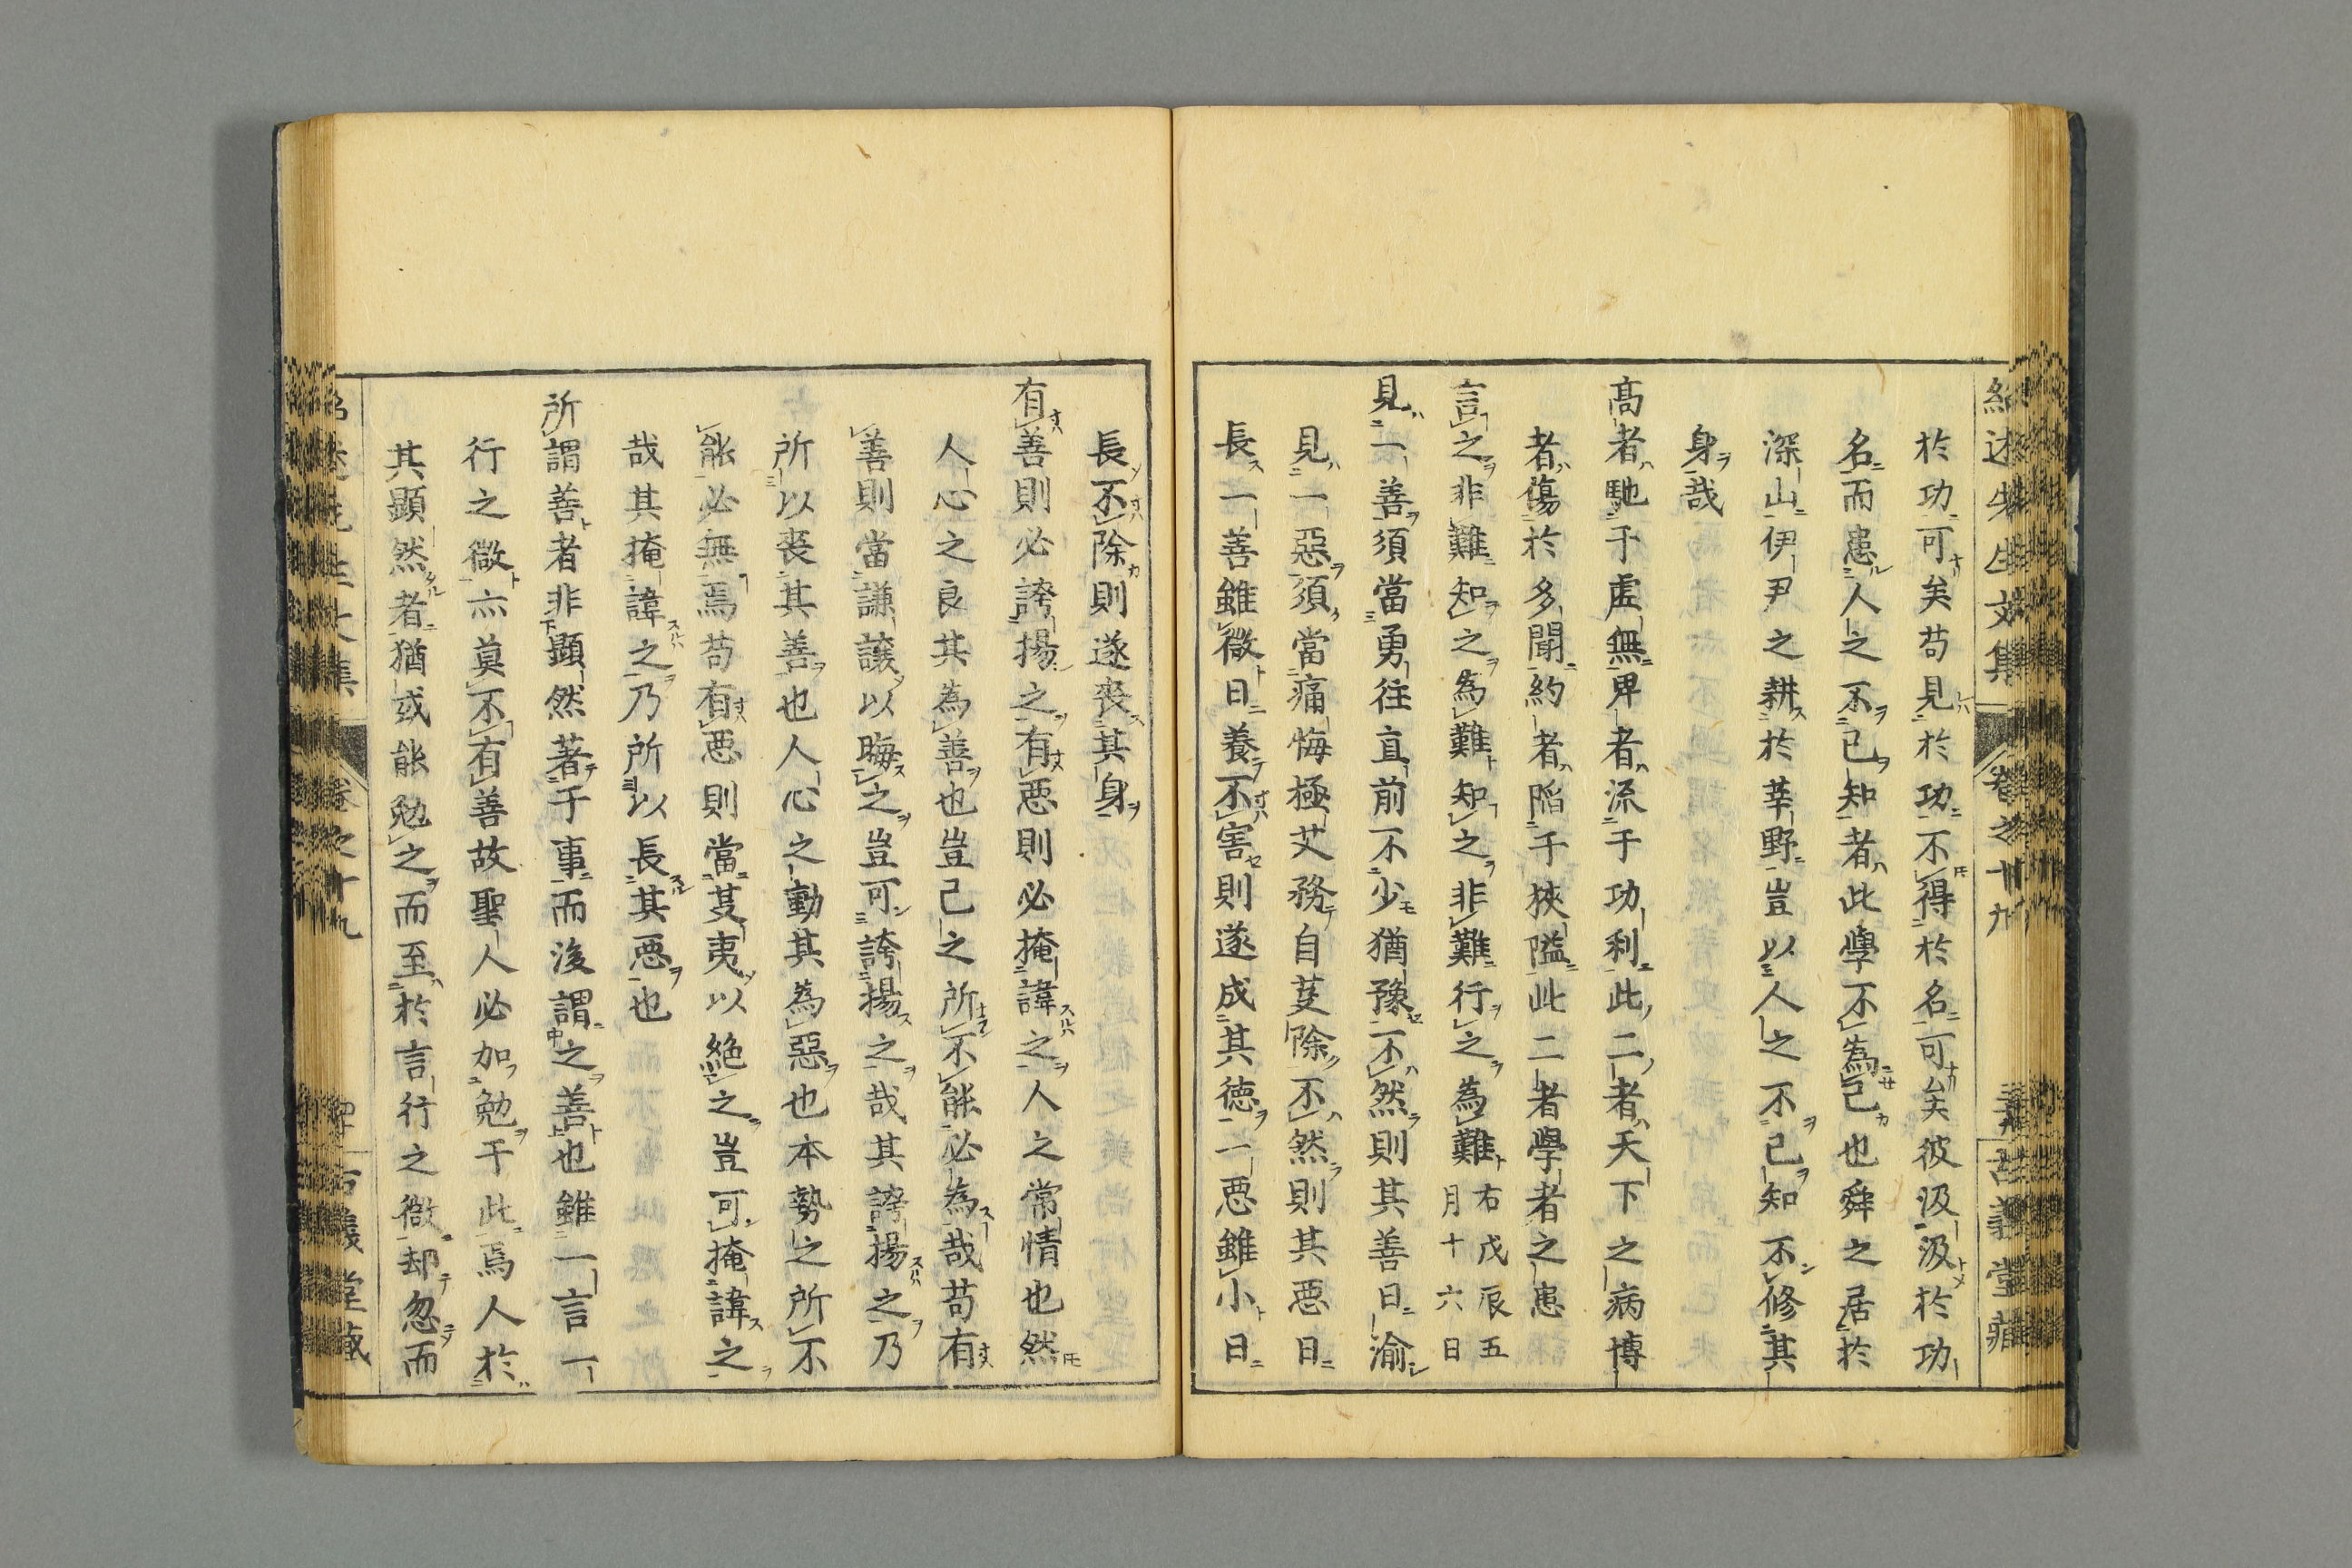 紹述先生文集 卷之十九 古義堂藏
於功可矣苟見於功不得於名可矣彼汲汲於功
名而患人之不己知者此學不為己也舜之居於
深山伊尹之耕於莘野豈以人之不己知不修其
身哉
高者馳于虛無卑者流于功利此二者天下之病博
者傷於多聞約者陷于狹隘此二者學者之患
言之非難知之為難知之非難行之為難右戊辰五月十六日
見一善須當勇往直前不少猶豫不然則其善日渝
見一惡須當痛悔極艾務自芟除不然則其惡日
長一善雖微日養不害則遂成其德一惡雖小日
長不除則遂喪其身
有善則必誇揚之有惡則必掩諱之人之常情也然
人心之良其為善也豈己之所不能必為哉苟有
善則當謙讓以晦之豈可誇揚之哉其誇揚之乃
所以喪其善也人心之動其為惡也本勢之所不
能必無焉苟有惡則當芟夷以絕之豈可掩諱之
哉其掩諱之乃所以長其惡也
所謂善者非顯然著于事而後謂之善也雖一言一
行之微亦莫不有善故聖人必加勉于此焉人於
其顯然者猶或能勉之而至於言行之微却忽而
卷之十九 古義堂藏